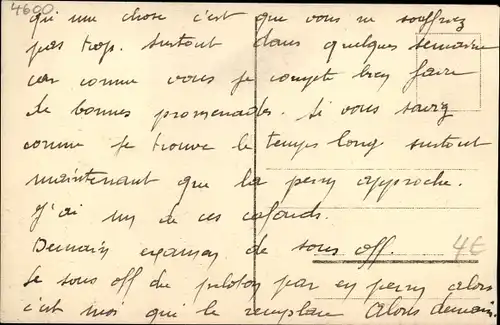 4600
qui une chose c'est que vous ne souffriez
pas trop. surtout dans quelques semaines
car comme vous je compte bien faire
de bonnes promenades. Si vous saviez
comme je trouve le temps long surtout
maintenant que la perm approche.
J'ai un de ces cafards.
Demain examen de sous off. 4E
Le sous off du peloton par en perm alors
c'est moi qui le remplace Alors demain.